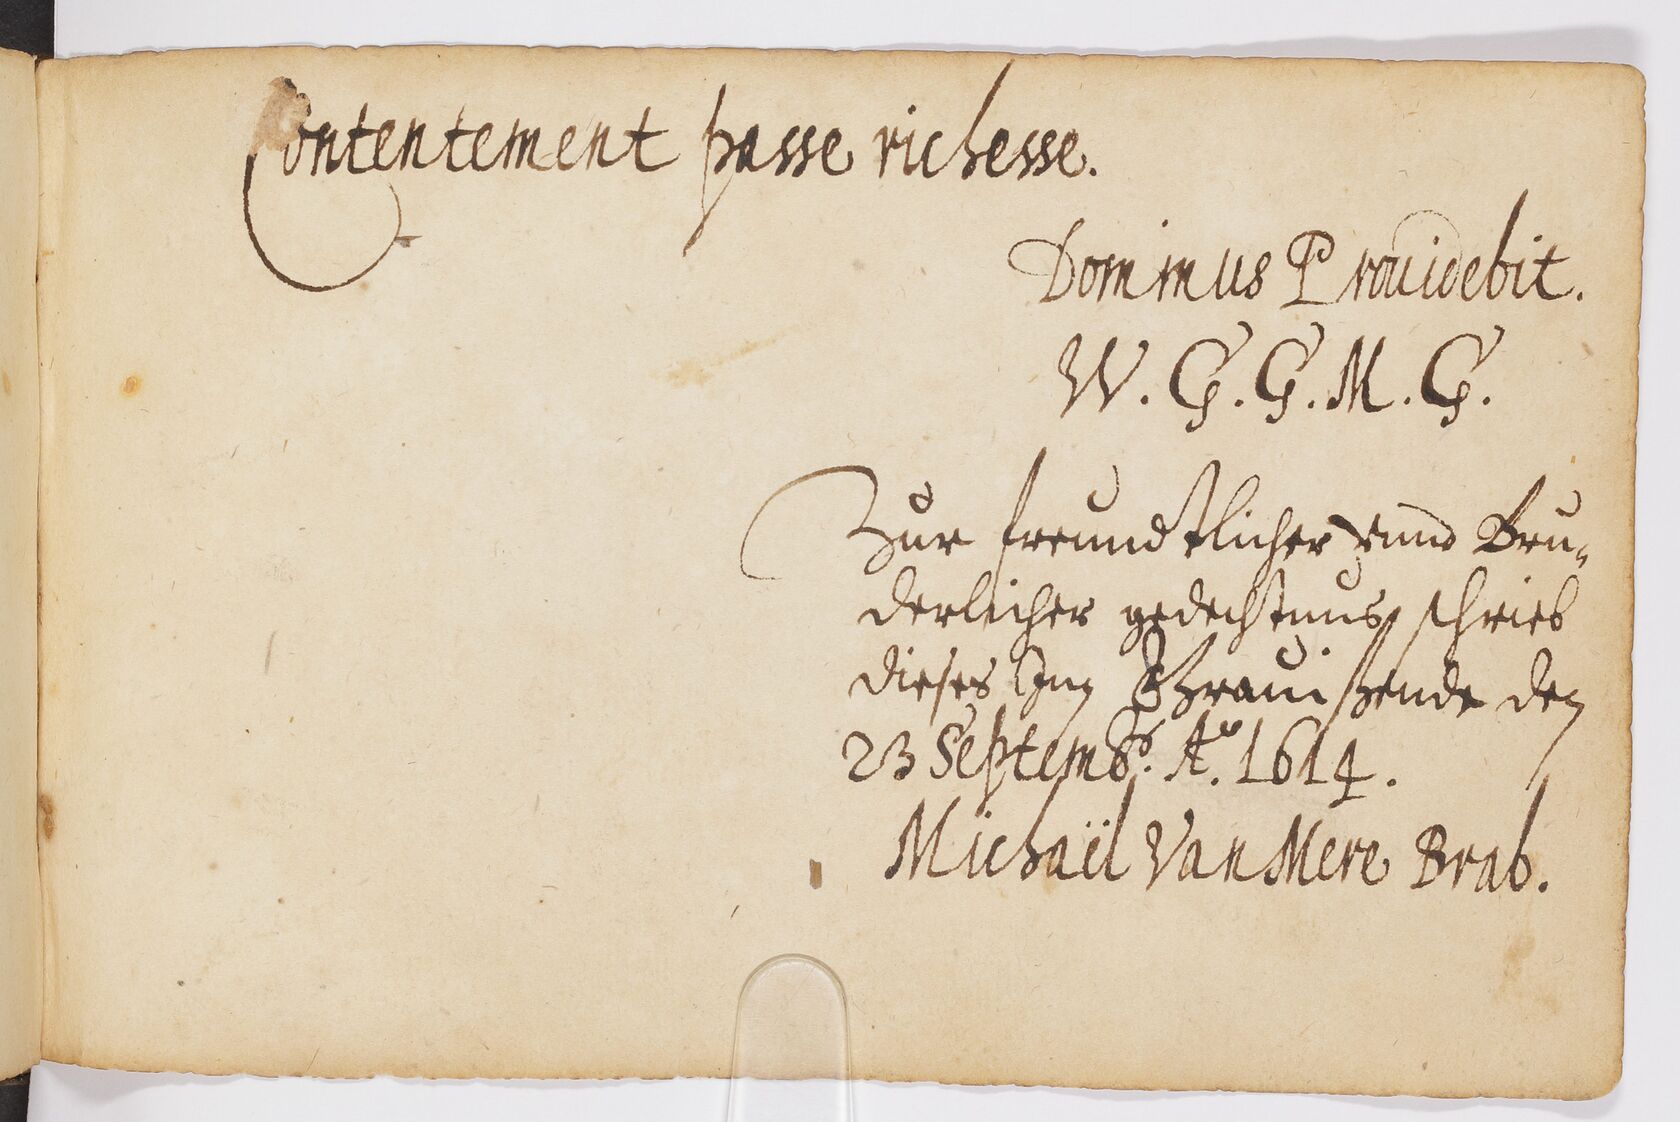 Contentement passe richesse.
Dominus Prouidebit.
W. G. G. M. G.
Zur freundtlicher vnnd Bru-
derlicher gedechtnus schrieb
dieses Inn den
23 Septemb. Aº. 1614.
Michaïl Van Mere Brab.